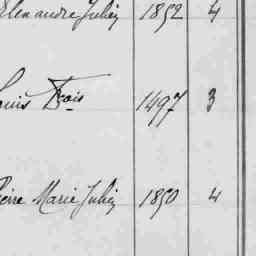 Alexandre Julien 1852 4
Louis Frois 1497 3
Pierre Marie Julien 1850 4